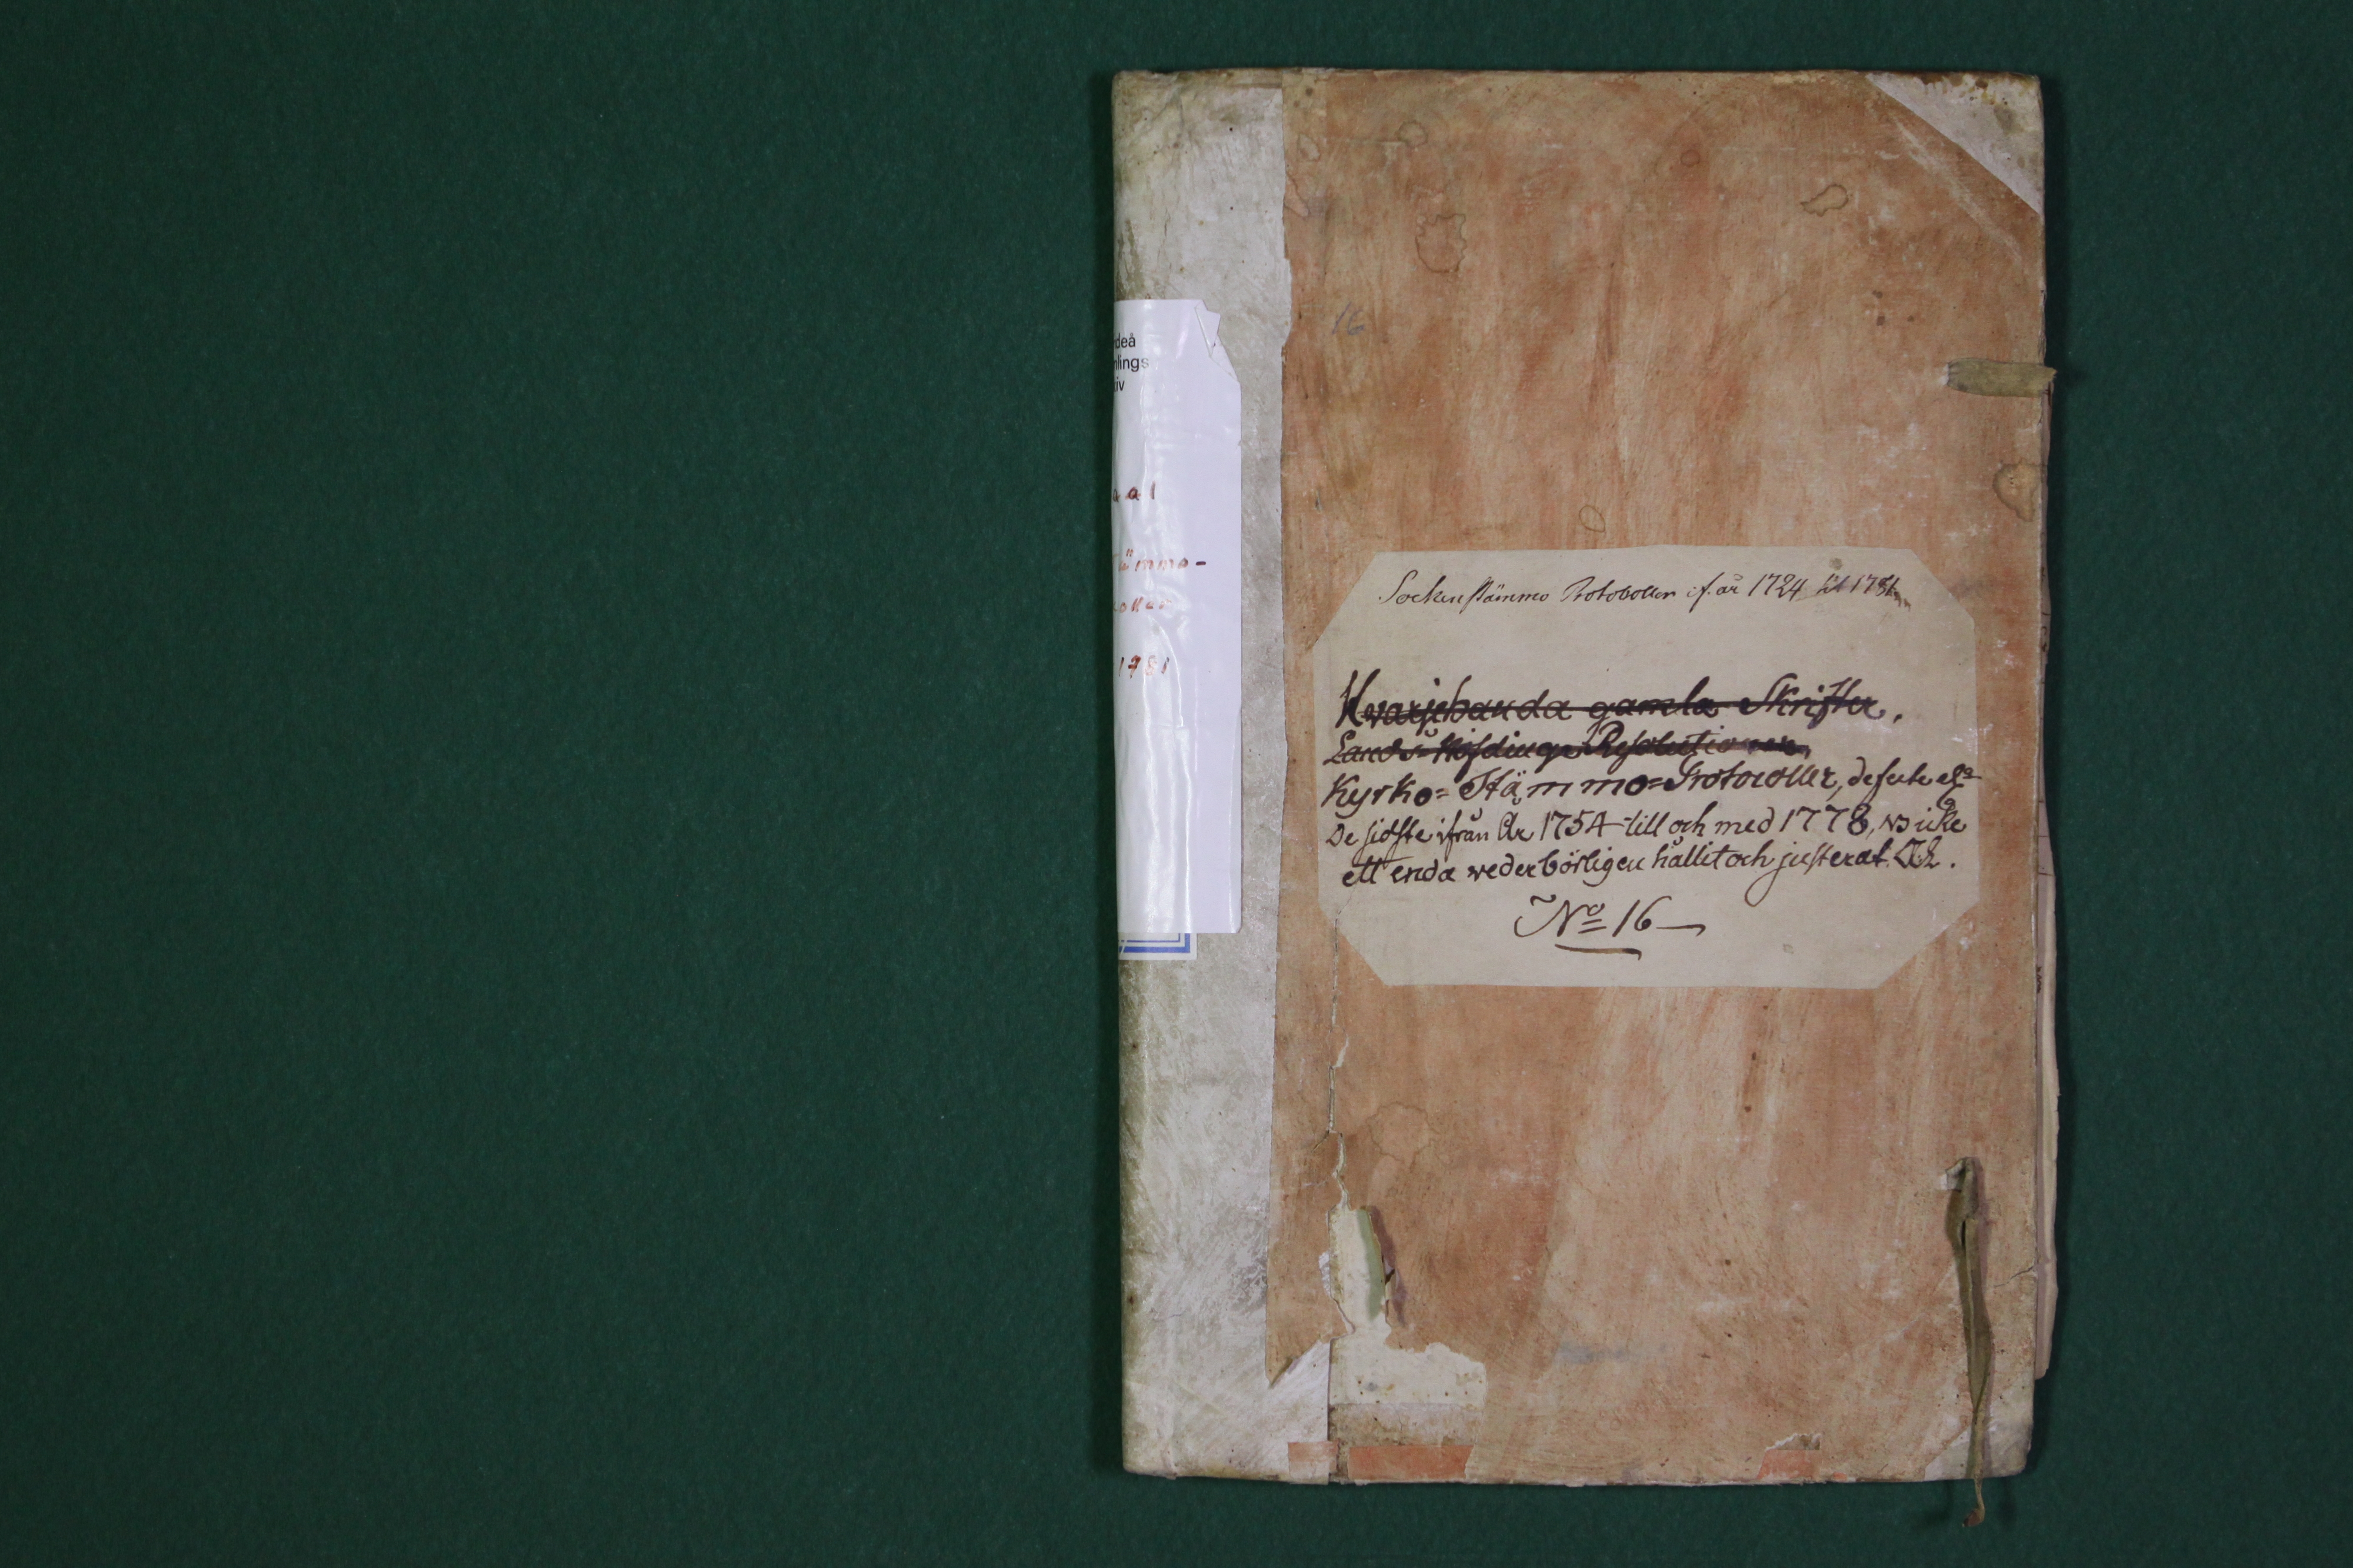 deå
lings
iv
a a 1
ämmo-
oller
1781
16
Sockenstämmo Protocoller if. år 1724 till 1781
Kvarjehanda gamla Skrifter.
Lands-Höfdinge Resolutioner
Kyrko= Stämmo=Protocoller, defecte
De sidste ifrån År 1754 till och med 1778, icke
ett enda wederbörligen hållit och justerat.
No 16